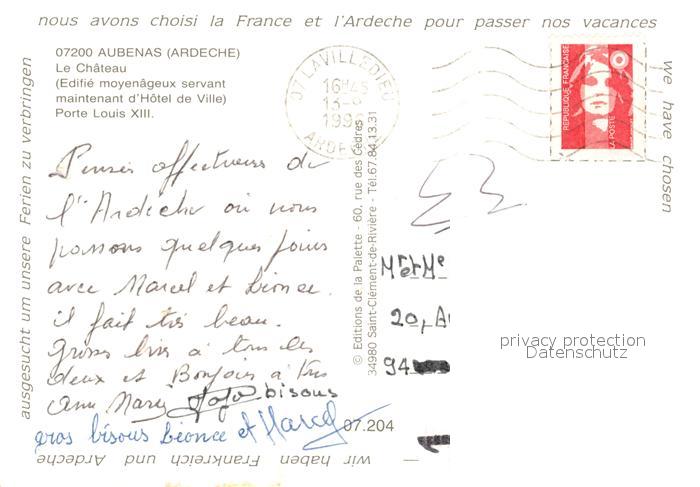 nous avons choisi la France et l'Ardeche pour passer nos vacances
we have chosen
07200 AUBENAS (ARDECHE)
Le Château
(Edifié moyenâgeux servant
maintenant d'Hôtel de Ville)
Porte Louis XIII.
07 LAVILLEDIEU
16H45
13-
199
ARDECHE
REPUBLIQUE FRANÇAISE
LA POSTE
Pensées affectueuses de
l'Ardèche où nous
passons quelques jours
avec Marcel et Léonce.
il fait très beau.
grosses bises à tous les
deux et Bonjour à tous
Anne Marie bisous
gros bisous Léonce et Marcel
07.204
© Editions de la Palette - 60, rue des Cèdres
34980 Saint-Clément-de-Rivière - Tél. 67.84.13.31
Mr et Me
20,
94
privacy protection
Datenschutz
wir haben Frankreich und Ardeche
ausgesucht um unsere Ferien zu verbringen